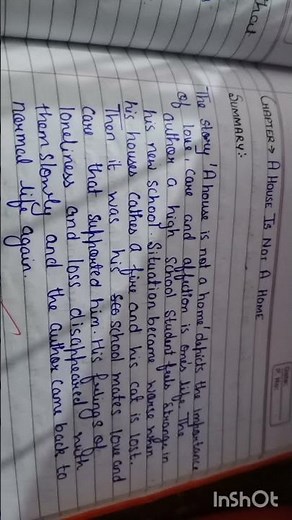 CHAPTER → A HOUSE IS NOT A HOME
SUMMARY:-
The story 'A house is not a home' depicts the importance
of love, care and affection is ones life. The
author a high school student feels strange in
his new school. Situation became worse when
his houses cathes a fire and his cat is lost.
Then it was his school mates love and
care that supported him. His feelings of
loneliness and loss disappeared with
them slowly and the author came back to
normal life again.
InShOt